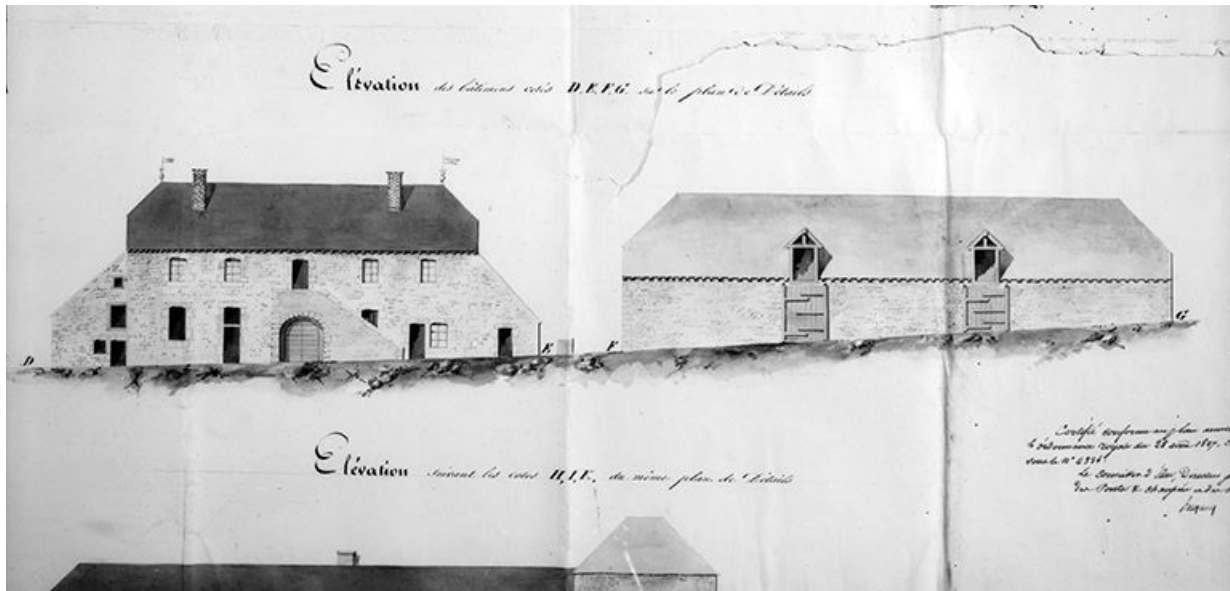 Elévation des bâtimens cotés D.E.F.G. sur le plan de Détails
D E F G
Elévation suivant les cotes H, I, K, du même plan de Détails
Certifié conforme au plan annexé
ordonnance royale du 28 août 1827.
sous le N°
Le Conseiller d'Etat, Directeur
des Ponts & chaussées et des